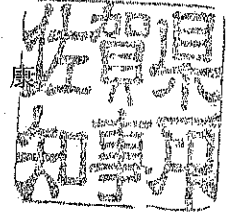 佐賀県
知事印
康